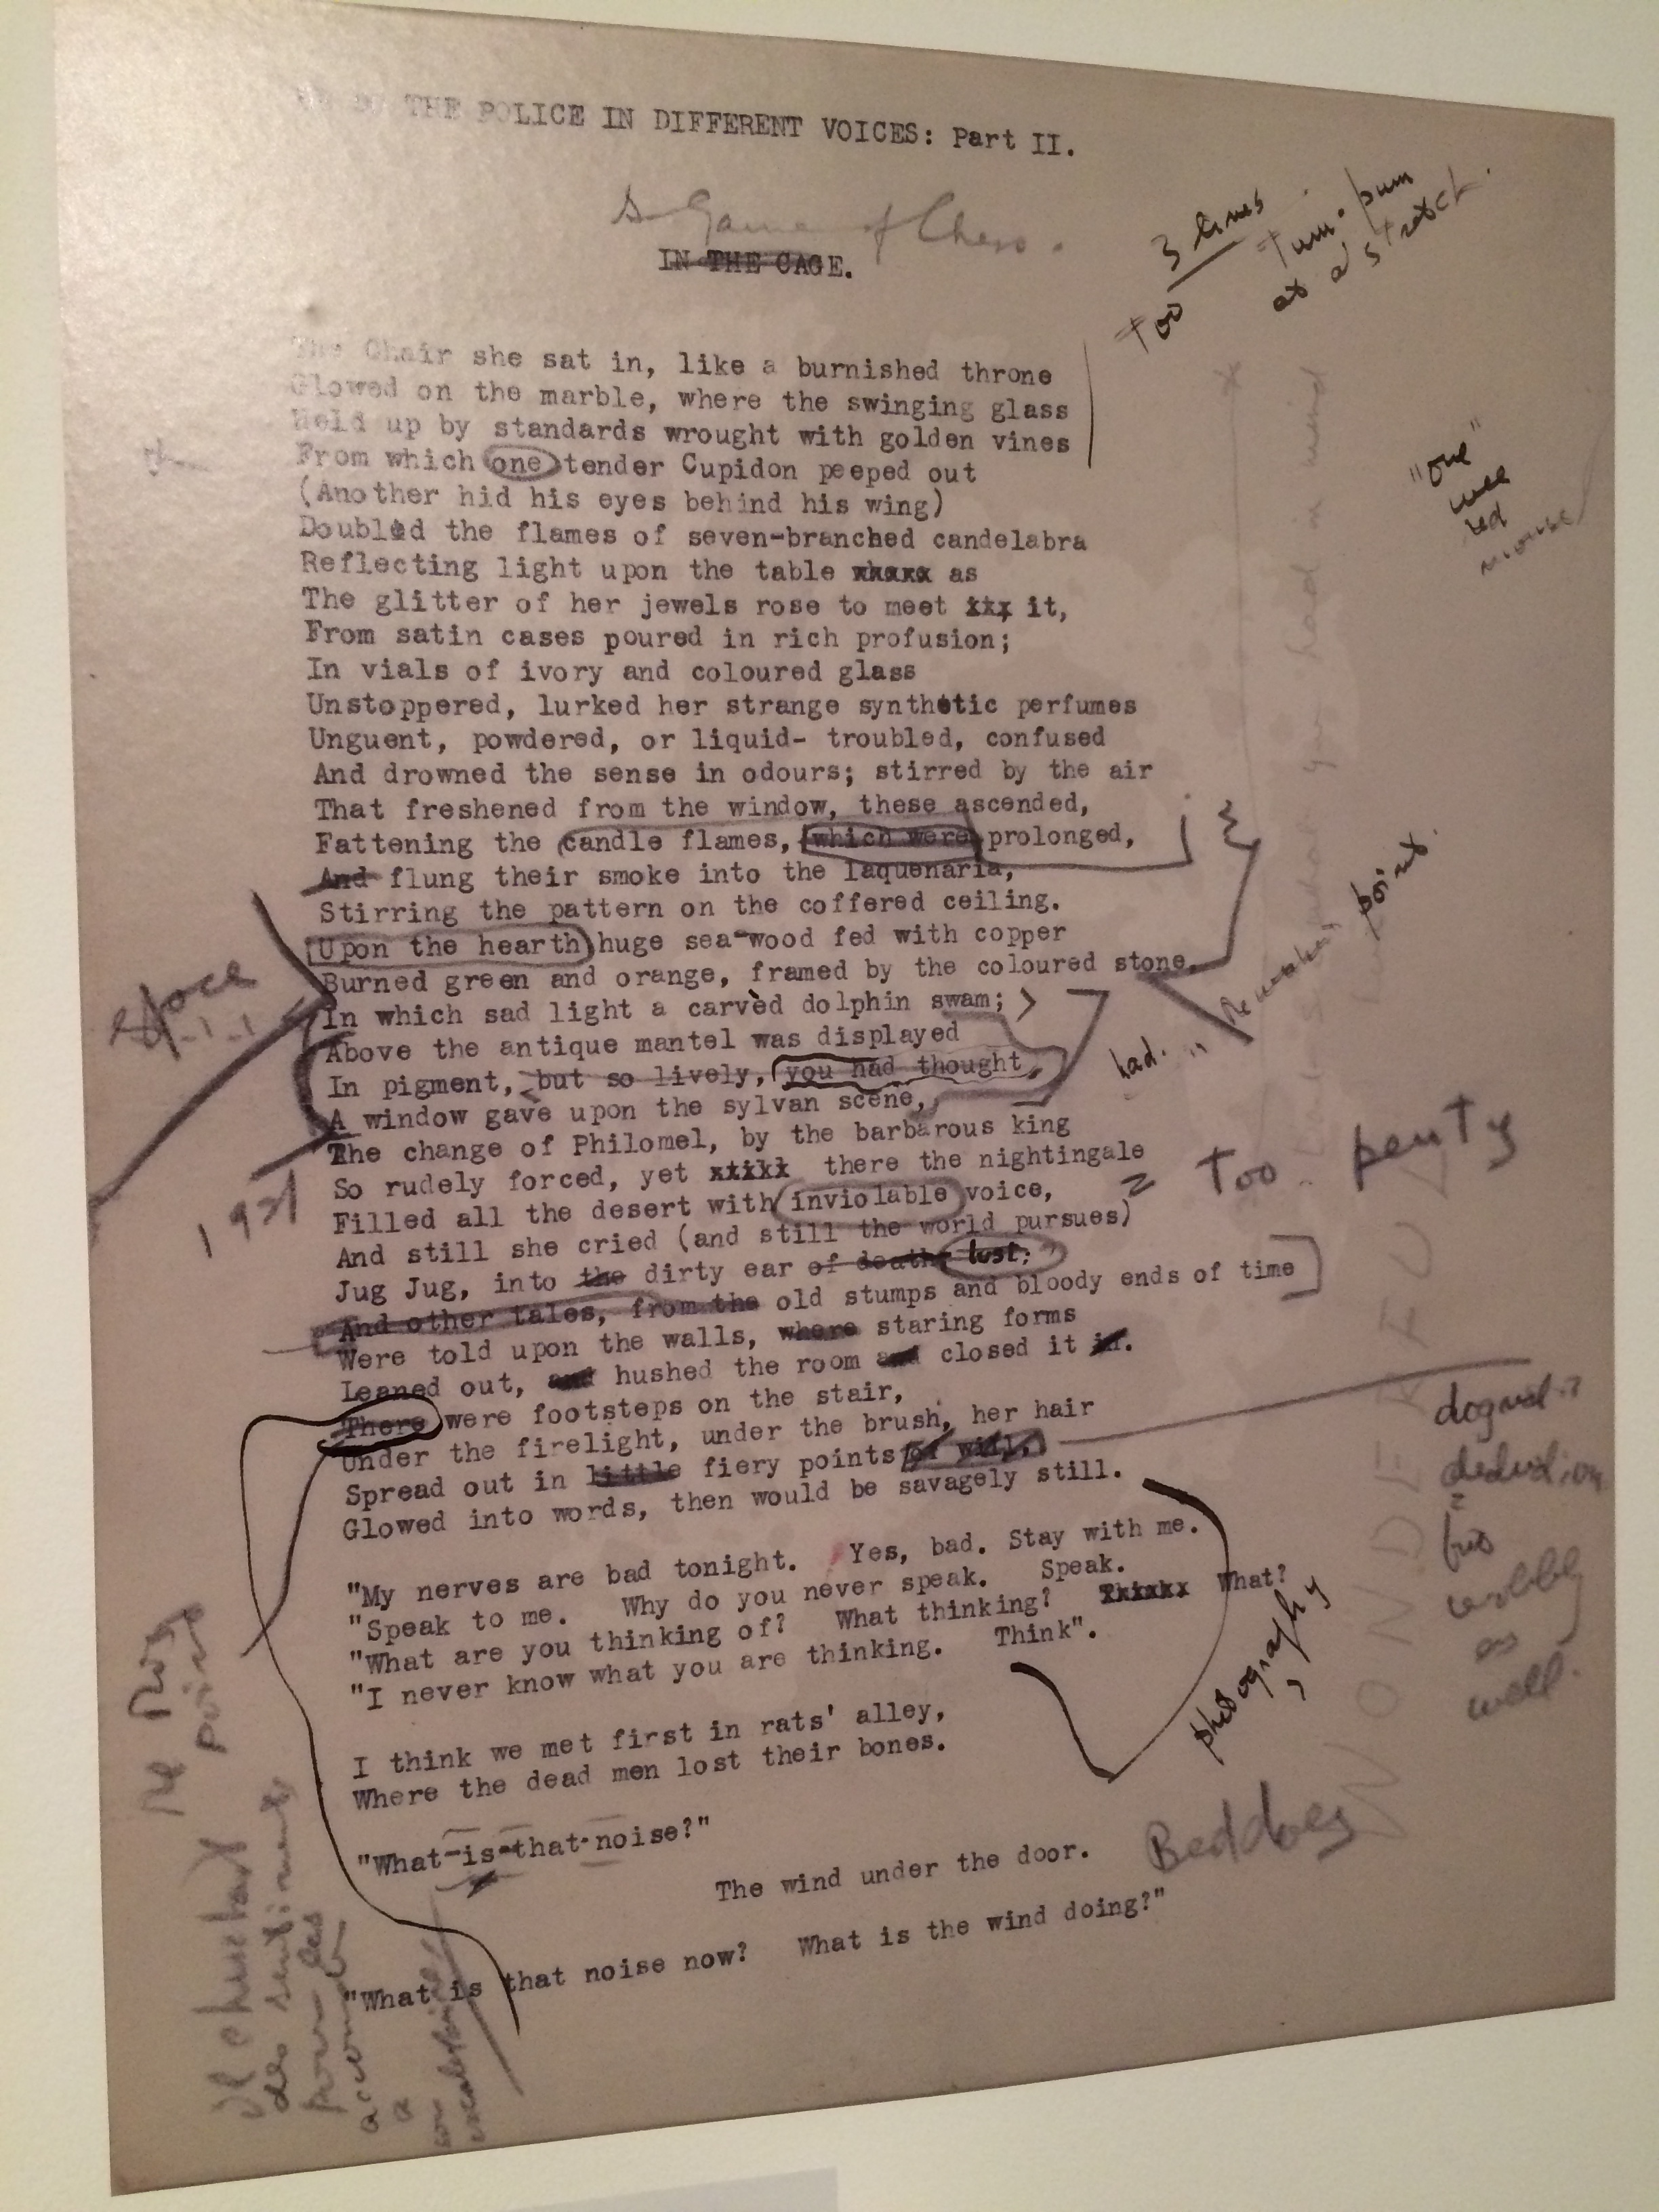 THE POLICE IN DIFFERENT VOICES: Part II.
A Game of Chess.
IN THE CAGE.
3 lines
Too tum-pum
at a stretch
The Chair she sat in, like a burnished throne
Glowed on the marble, where the swinging glass
Held up by standards wrought with golden vines
From which one tender Cupidon peeped out
(Another hid his eyes behind his wing)
Doubled the flames of seven-branched candelabra
Reflecting light upon the table as
The glitter of her jewels rose to meet it,
From satin cases poured in rich profusion;
In vials of ivory and coloured glass
Unstoppered, lurked her strange synthetic perfumes
Unguent, powdered, or liquid- troubled, confused
And drowned the sense in odours; stirred by the air
That freshened from the window, these ascended,
Fattening the candle flames, which were prolonged,
And flung their smoke into the laquenaria,
Stirring the pattern on the coffered ceiling.
Upon the hearth huge sea-wood fed with copper
Burned green and orange, framed by the coloured stone,
In which sad light a carvèd dolphin swam;
Above the antique mantel was displayed
In pigment, but so lively, you had thought,
A window gave upon the sylvan scene,
The change of Philomel, by the barbarous king
So rudely forced, yet there the nightingale
Filled all the desert with inviolable voice,
And still she cried (and still the world pursues)
Jug Jug, into the dirty ear of death; lust;
And other tales, from the old stumps and bloody ends of time
Were told upon the walls, where staring forms
Leaned out, and hushed the room and closed it in.
There were footsteps on the stair,
Under the firelight, under the brush, her hair
Spread out in little fiery points of will,
Glowed into words, then would be savagely still.
"My nerves are bad tonight. Yes, bad. Stay with me.
"Speak to me. Why do you never speak. Speak.
"What are you thinking of? What thinking? What?
"I never know what you are thinking. Think".
I think we met first in rats' alley,
Where the dead men lost their bones.
"What is that noise?"
The wind under the door.
"What is that noise now? What is the wind doing?"
"one"
wee
red
mouse
had.
point.
too penty
1921
space
dogmatic
deduction
but
wobbly
as
well.
photography
?
Beddoes
WONDERFUL
Il cherchait
des sentiments
pour les
accomoder
a
son
vocabulaire